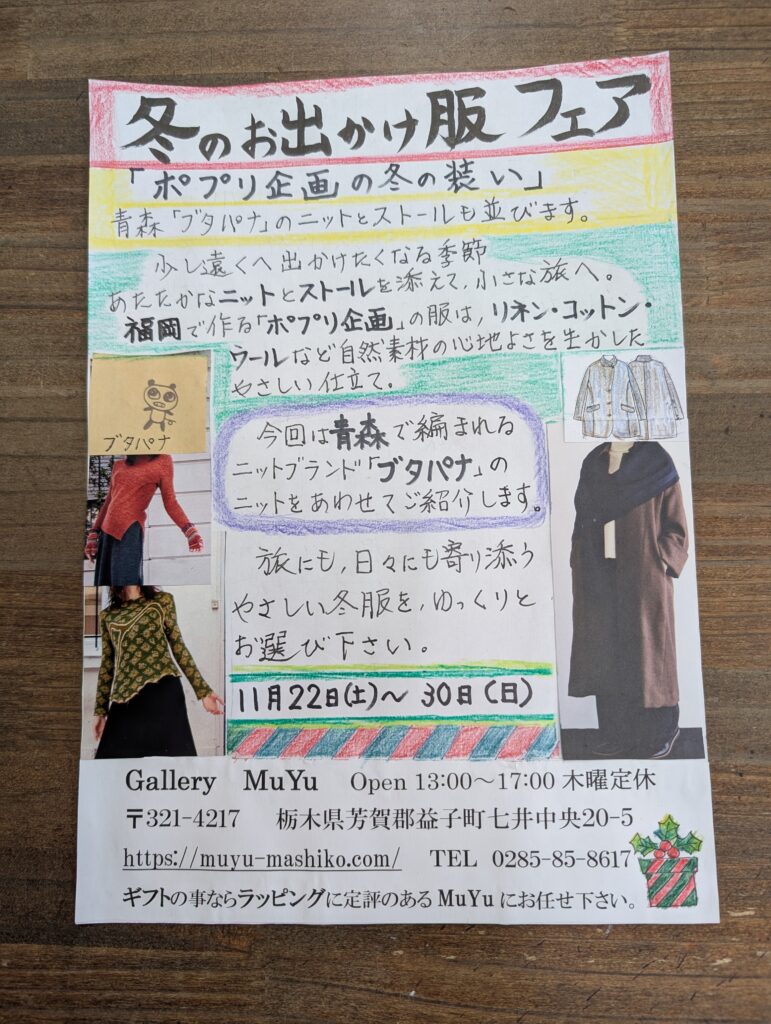 冬のお出かけ服フェア
「ポプリ企画の冬の装い」
青森「ブタパナ」のニットとストールも並びます。
少し遠くへ出かけたくなる季節
あたたかなニットとストールを添えて、小さな旅へ。
福岡で作る「ポプリ企画」の服は、リネン・コットン・
ウールなど自然素材の心地よさを生かした
やさしい仕立て。
ブタパナ
今回は青森で編まれる
ニットブランド「ブタパナ」の
ニットをあわせてご紹介します。
旅にも、日々にも寄り添う
やさしい冬服を、ゆっくりと
お選び下さい。
11月22日(土)～30日(日)
Gallery MuYu Open 13:00～17:00 木曜定休
〒321-4217 栃木県芳賀郡益子町七井中央20-5
https://muyu-mashiko.com/ TEL 0285-85-8617
ギフトの事ならラッピングに定評のある MuYu にお任せ下さい。